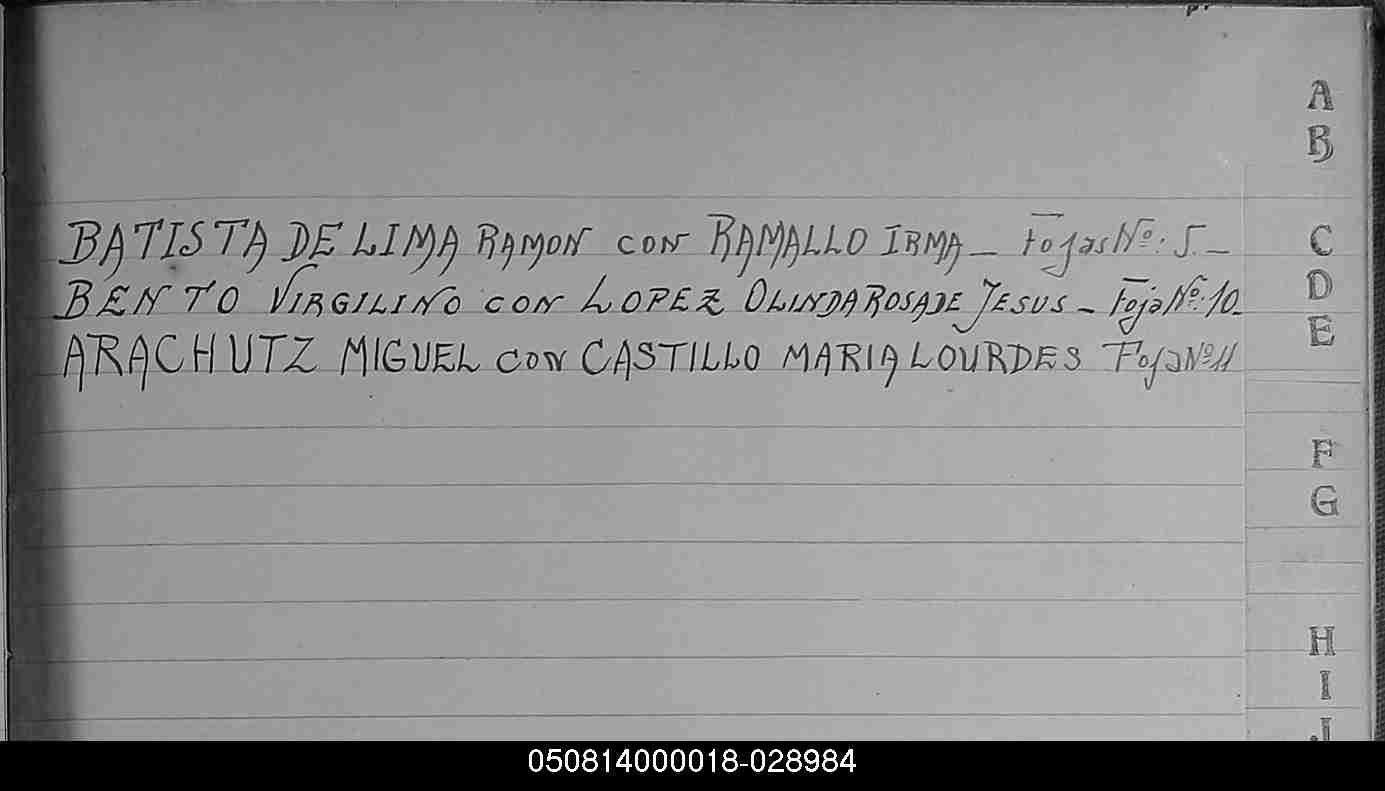 BATISTA DE LIMA RAMON CON RAMALLO IRMA _ Fojas Nº: 5._
BENTO VIRGILINO CON LOPEZ OLINDA ROSA DE JESUS - Foja Nº: 10_
ARACHUTZ MIGUEL CON CASTILLO MARIA LOURDES Foja Nº 11
A
B
C
D
E
F
G
H
I
J
050814000018-028984